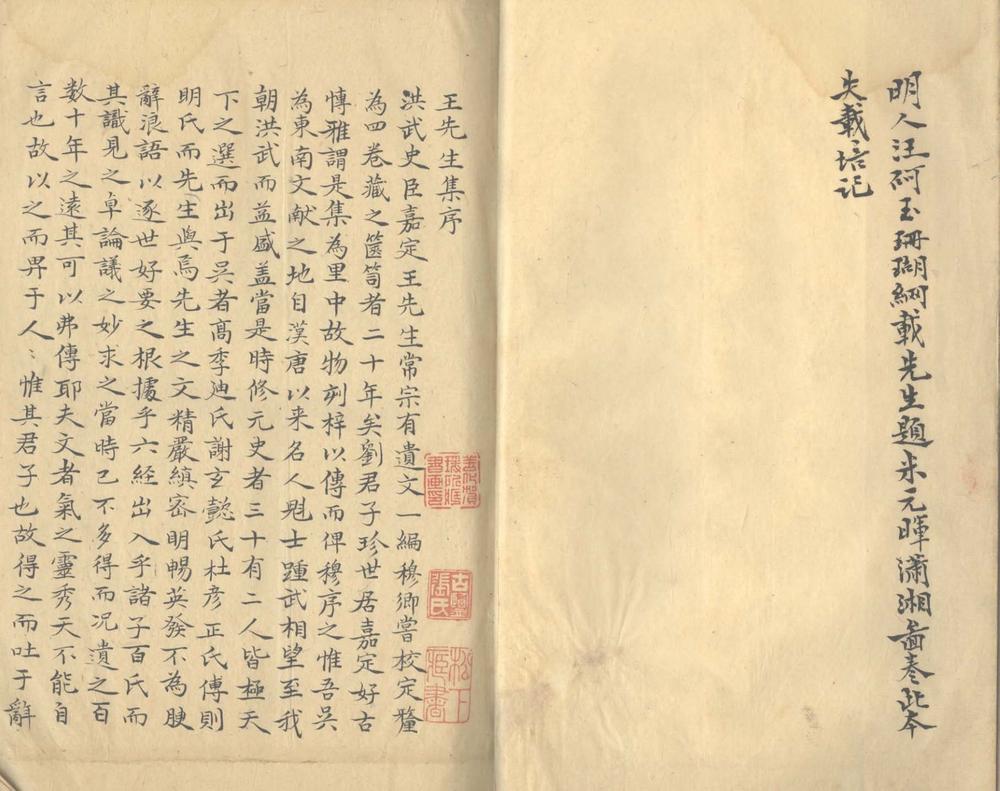 明人汪砢玉珊瑚網載先生題米元暉瀟湘畵卷此本
失載培記
王先生集序
洪武史臣嘉定王先生常宗有遺文一編穆卿嘗校定釐
為四卷藏之篋笥者二十年矣劉君子珍世居嘉定好古
愽雅謂是集為里中故物刻梓以傳而俾穆序之惟吾吳
為東南文献之地自漢唐以来名人魁士踵武相望至我
朝洪武而益盛盖當是時修元史者三十有二人皆極天
下之選而出于吳者髙季迪氏謝玄懿氏杜彦正氏傅則
明氏而先生與焉先生之文精嚴縝宻明暢英發不為腴
辭浪語以逐世好要之根據乎六経出入乎諸子百氏而
其識見之卓論議之妙求之當時已不多得而况遺之百
数十年之遠其可以弗傳耶夫文者氣之靈秀天不能自
言也故以之而畀于人〻惟其君子也故得之而吐于辭
古鹽
張氏
松下
藏書